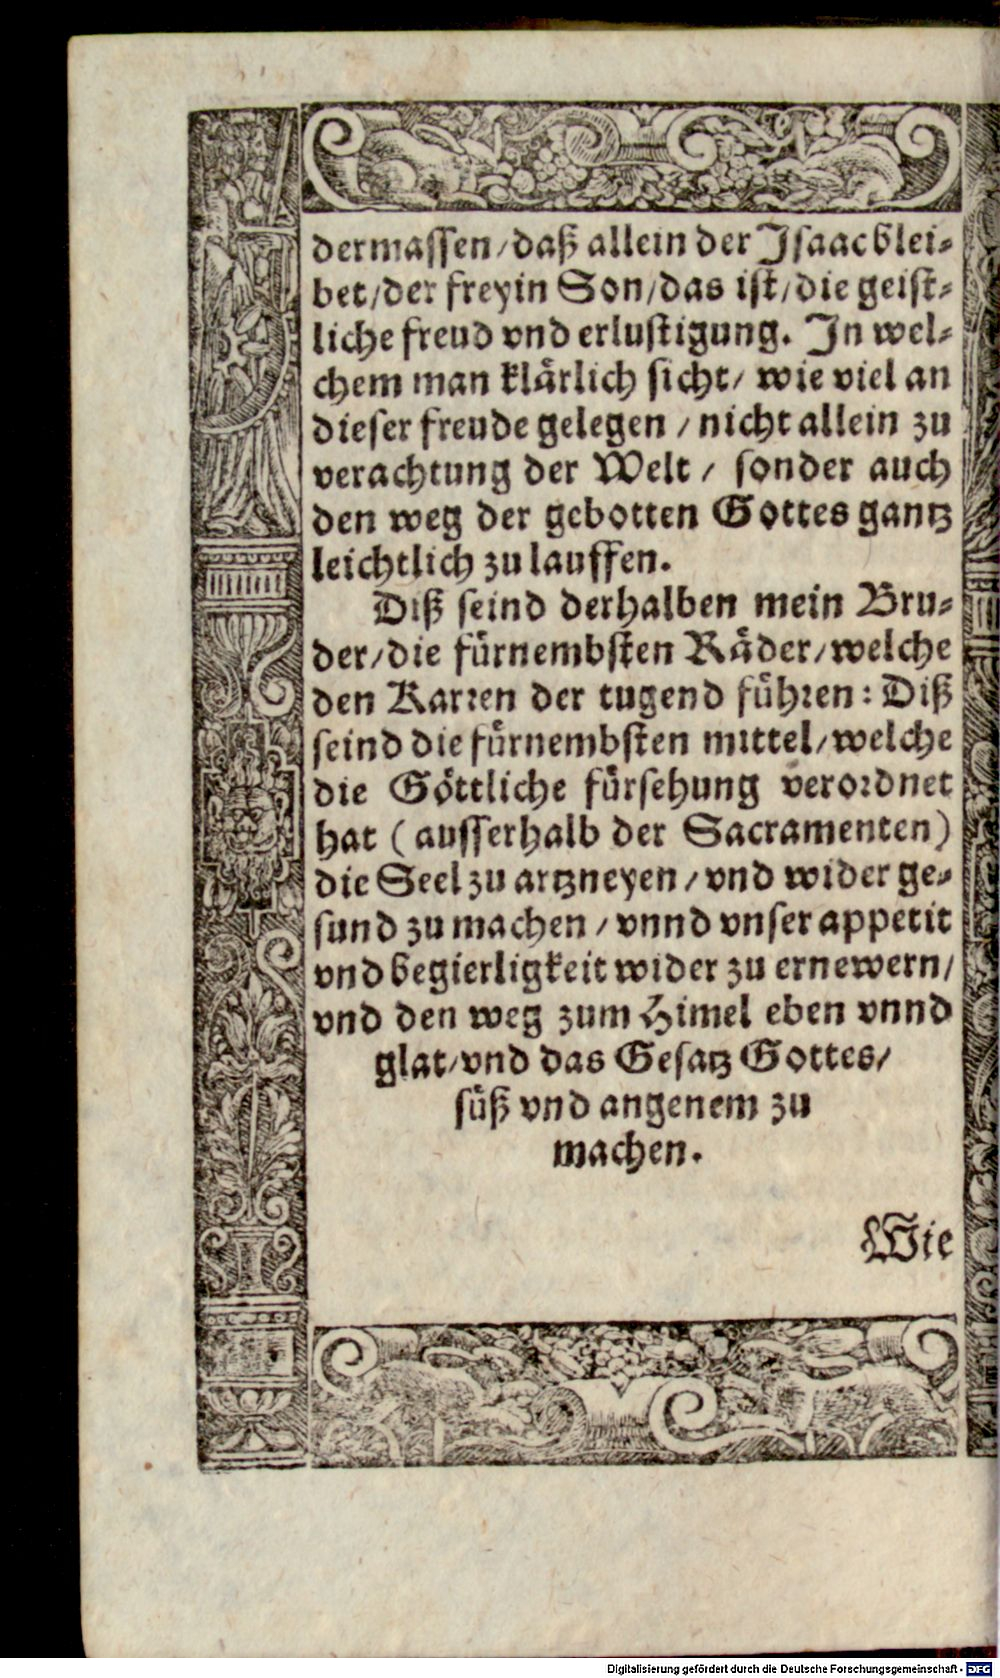 dermassen/daß allein der Isaac blei⸗
bet/der freyin Son/das ist/die geist⸗
liche freud vnd erlustigung. In wel⸗
chem man klärlich sicht/ wie viel an
dieser freude gelegen / nicht allein zu
verachtung der Welt / sonder auch
den weg der gebotten Gottes gantz
leichtlich zu lauffen.
Diß seind derhalben mein Bru⸗
der/die fürnembsten Räder/welche
den Karren der tugend führen: Diß
seind die fürnembsten mittel/welche
die Göttliche fürsehung verordnet
hat (ausserhalb der Sacramenten)
die Seel zu artzneyen/vnd wider ge⸗
sund zu machen / vnnd vnser appetit
vnd begierligkeit wider zu ernewern/
vnd den weg zum Himel eben vnnd
glat/vnd das Gesatz Gottes/
süß vnd angenem zu
machen.
Wie
Digitalisierung gefördert durch die Deutsche Forschungsgemeinschaft - DFG